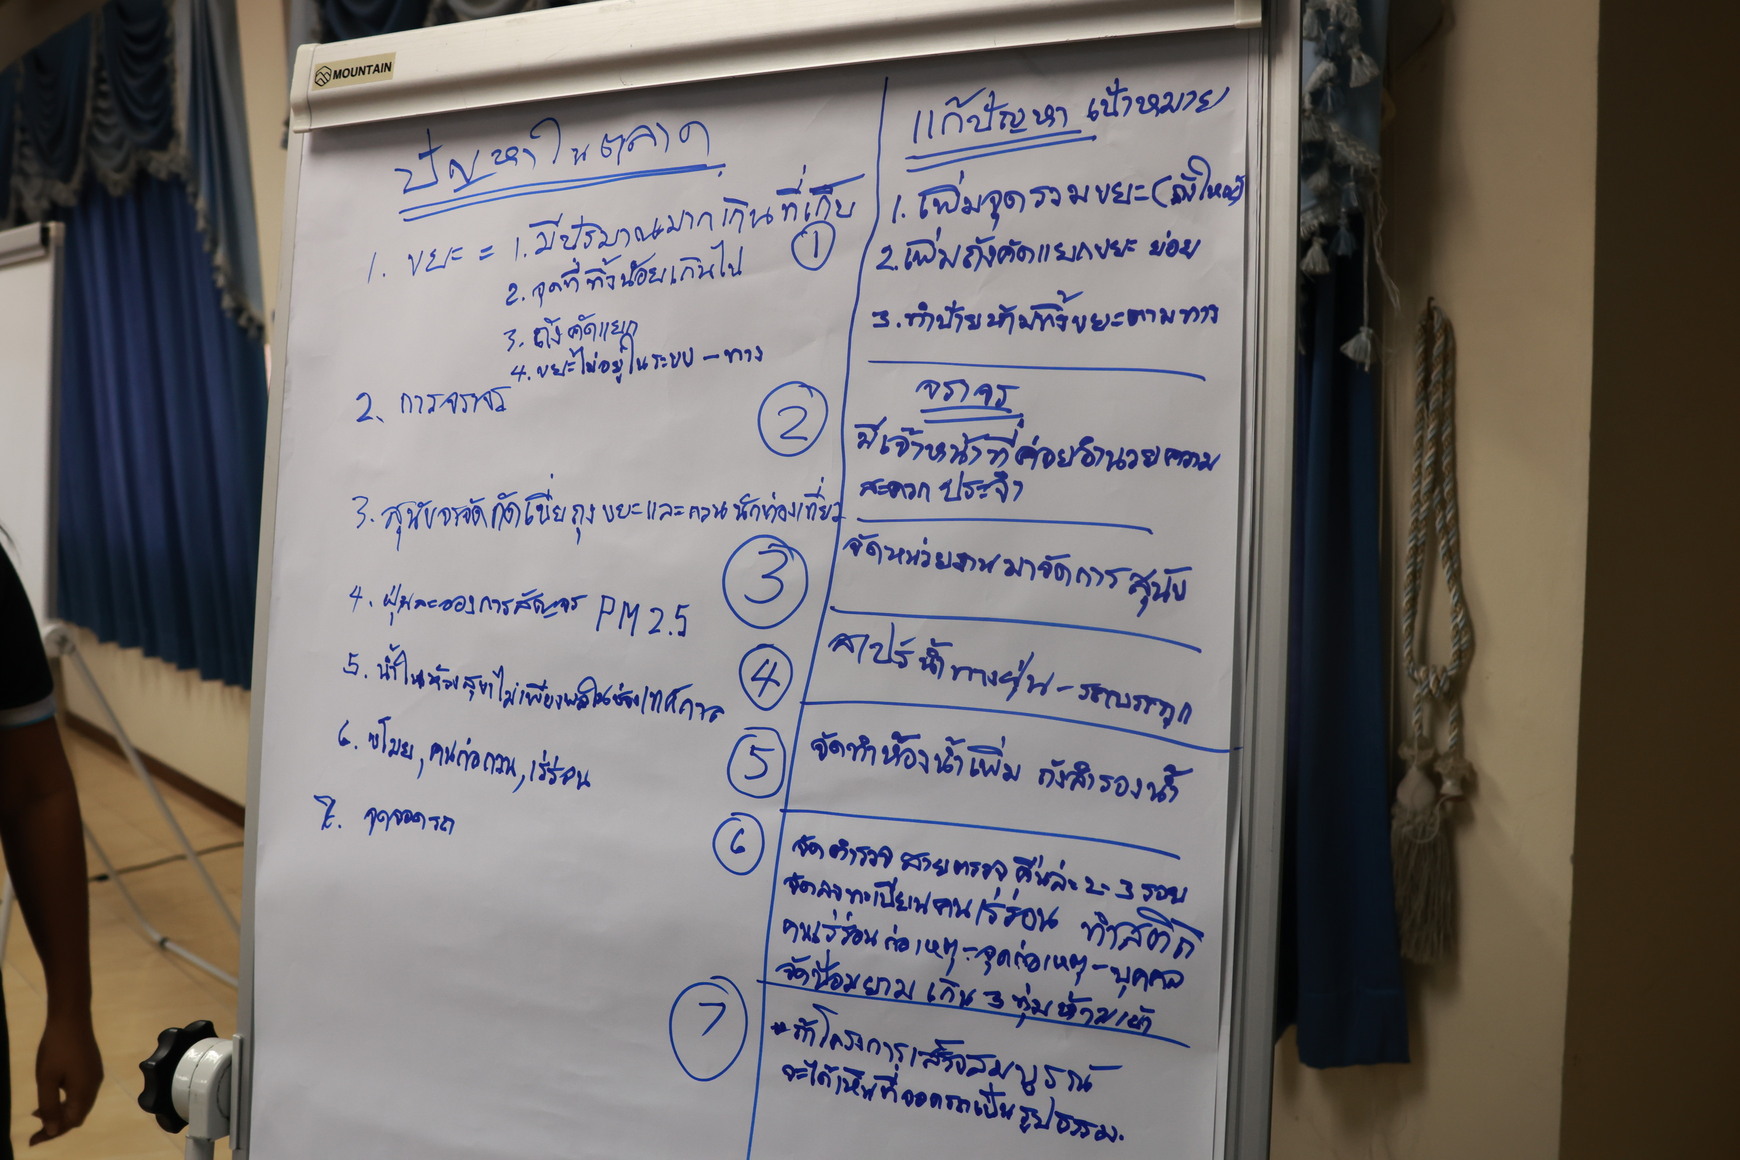 MOUNTAIN
ปัญหาในตลาด
1. ขยะ = 1. มีปริมาณมากเกินที่เก็บ
2. จุดที่ทิ้งน้อยเกินไป
3. ถังคัดแยก
4. ขยะไม่อยู่ในระบบ - ทาง
2. การจราจร
3. สุนัขจรจัดกัดเขี่ยถุงขยะและกวนนักท่องเที่ยว
4. ฝุ่นละอองการสัญจร PM 2.5
5. น้ำในห้องสุขาไม่เพียงพอในช่วงเทศกาล
6. ขโมย, คนก่อกวน, เร่ร่อน
7. จุดจอดรถ
แก้ปัญหา เป้าหมาย
1. เพิ่มจุดรวมขยะ (ถังใหญ่)
1
2. เพิ่มถังคัดแยกขยะ ย่อย
3. ทำป้ายห้ามทิ้งขยะตามทาง
2
จราจร
มีเจ้าหน้าที่ค่อยอำนวยความ
สะดวก ประจำ
3
จัดหน่วยงานมาจัดการ สุนัข
4
สเปร์น้ำทางฝุ่น - รถบรรทุก
5
จัดทำห้องน้ำเพิ่ม ถังสำรองน้ำ
6
จัดตำรวจ สายตรวจ คืนล่ะ 2-3 รอบ
จัดลงทะเบียนคนเร่ร่อน ทำสถิติ
คนเร่ร่อน ก่อเหตุ - จุดก่อเหตุ - บุคคล
จัดป้อมยาม เกิน 3 ทุ่มห้ามเข้า
7
* ถ้าโครงการเสร็จสมบูรณ์
จะได้เห็นที่จอดรถเป็นรูปธรรม.